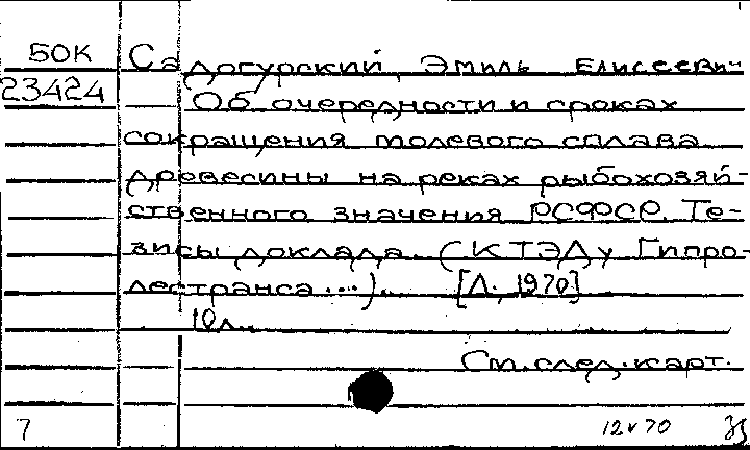 БОК Садогурский, Эмиль Елисеевич
23424 Об очередности и сроках
сокращения молевого сплава
древесины на реках рыбохозяй-
ственного значения РСФСР. Те-
зисы доклада. (К ТЭДу Гипро-
лестранса...). [Л., 1970]
10л.
См.след.карт.
7 12 v 70